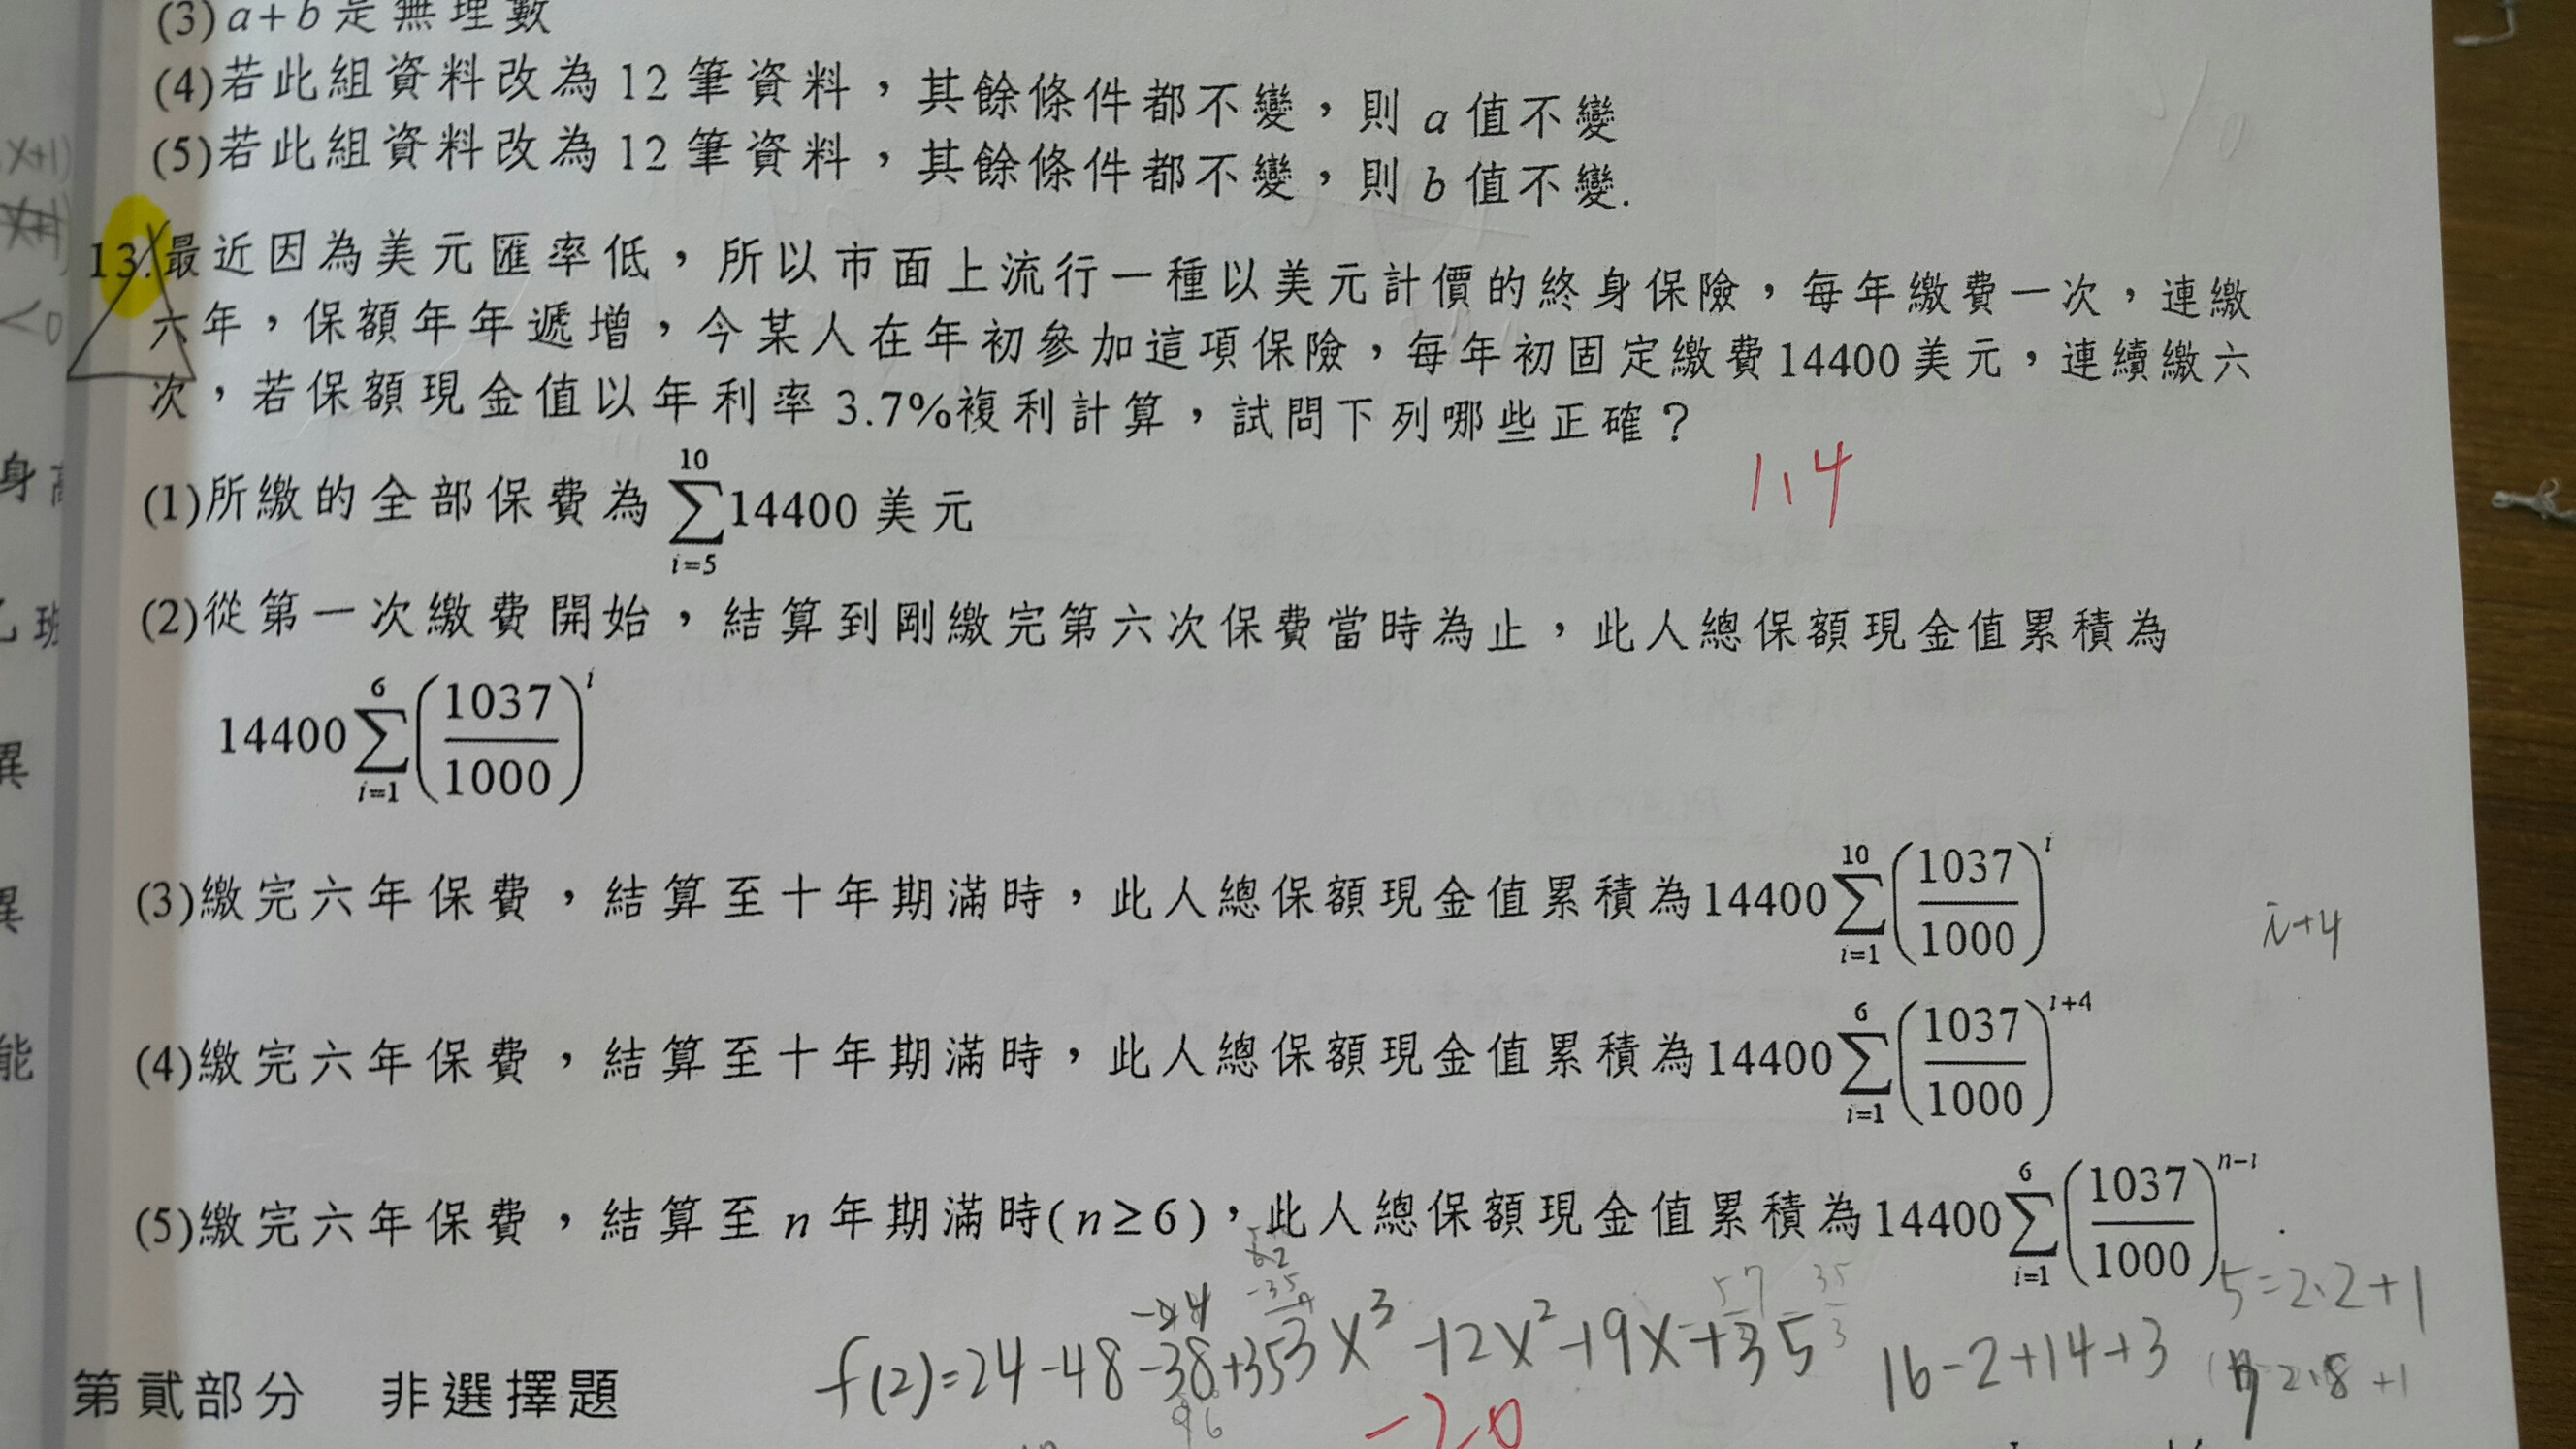 (3) a+b是無理數
(4)若此組資料改為12筆資料，其餘條件都不變，則a值不變
(5)若此組資料改為12筆資料，其餘條件都不變，則b值不變.
13.最近因為美元匯率低，所以市面上流行一種以美元計價的終身保險，每年繳費一次，連繳
六年，保額年年遞增，今某人在年初參加這項保險，每年初固定繳費14400美元，連續繳六
次，若保額現金值以年利率3.7%複利計算，試問下列哪些正確？
1,4
(1)所繳的全部保費為 \sum_{i=5}^{10}14400 美元
(2)從第一次繳費開始，結算到剛繳完第六次保費當時為止，此人總保額現金值累積為
14400\sum_{i=1}^{6}(\frac{1037}{1000})^{i}
(3)繳完六年保費，結算至十年期滿時，此人總保額現金值累積為14400\sum_{i=1}^{10}(\frac{1037}{1000})^{i}
i+4
(4)繳完六年保費，結算至十年期滿時，此人總保額現金值累積為14400\sum_{i=1}^{6}(\frac{1037}{1000})^{i+4}
(5)繳完六年保費，結算至n年期滿時(n≥6)，此人總保額現金值累積為14400\sum_{i=1}^{6}(\frac{1037}{1000})^{n-i}.
5=2.2+1
f(2)=24-48-38+35
3x³-12x²-19x+35
16-2+14+3
第貳部分　非選擇題
-20
x+1)
<0
身高
班
異
異
能